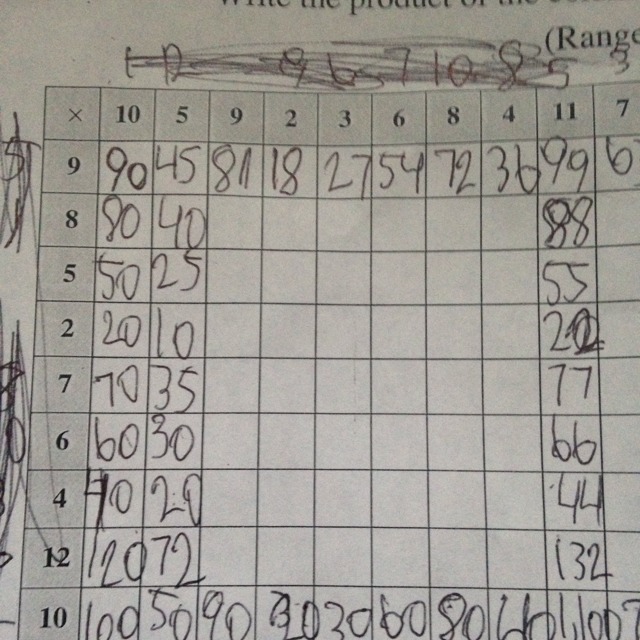 Write the product of the
(Range
9 6 7 10 8 5 3
× 10 5 9 2 3 6 8 4 11 7
9 90 45 81 18 27 54 72 36 99 6
8 80 40 88
5 50 25 55
2 20 10 22
7 70 35 77
6 60 30 66
4 40 20 44
12 120 72 132
10 100 50 90 20 30 60 80 40 110